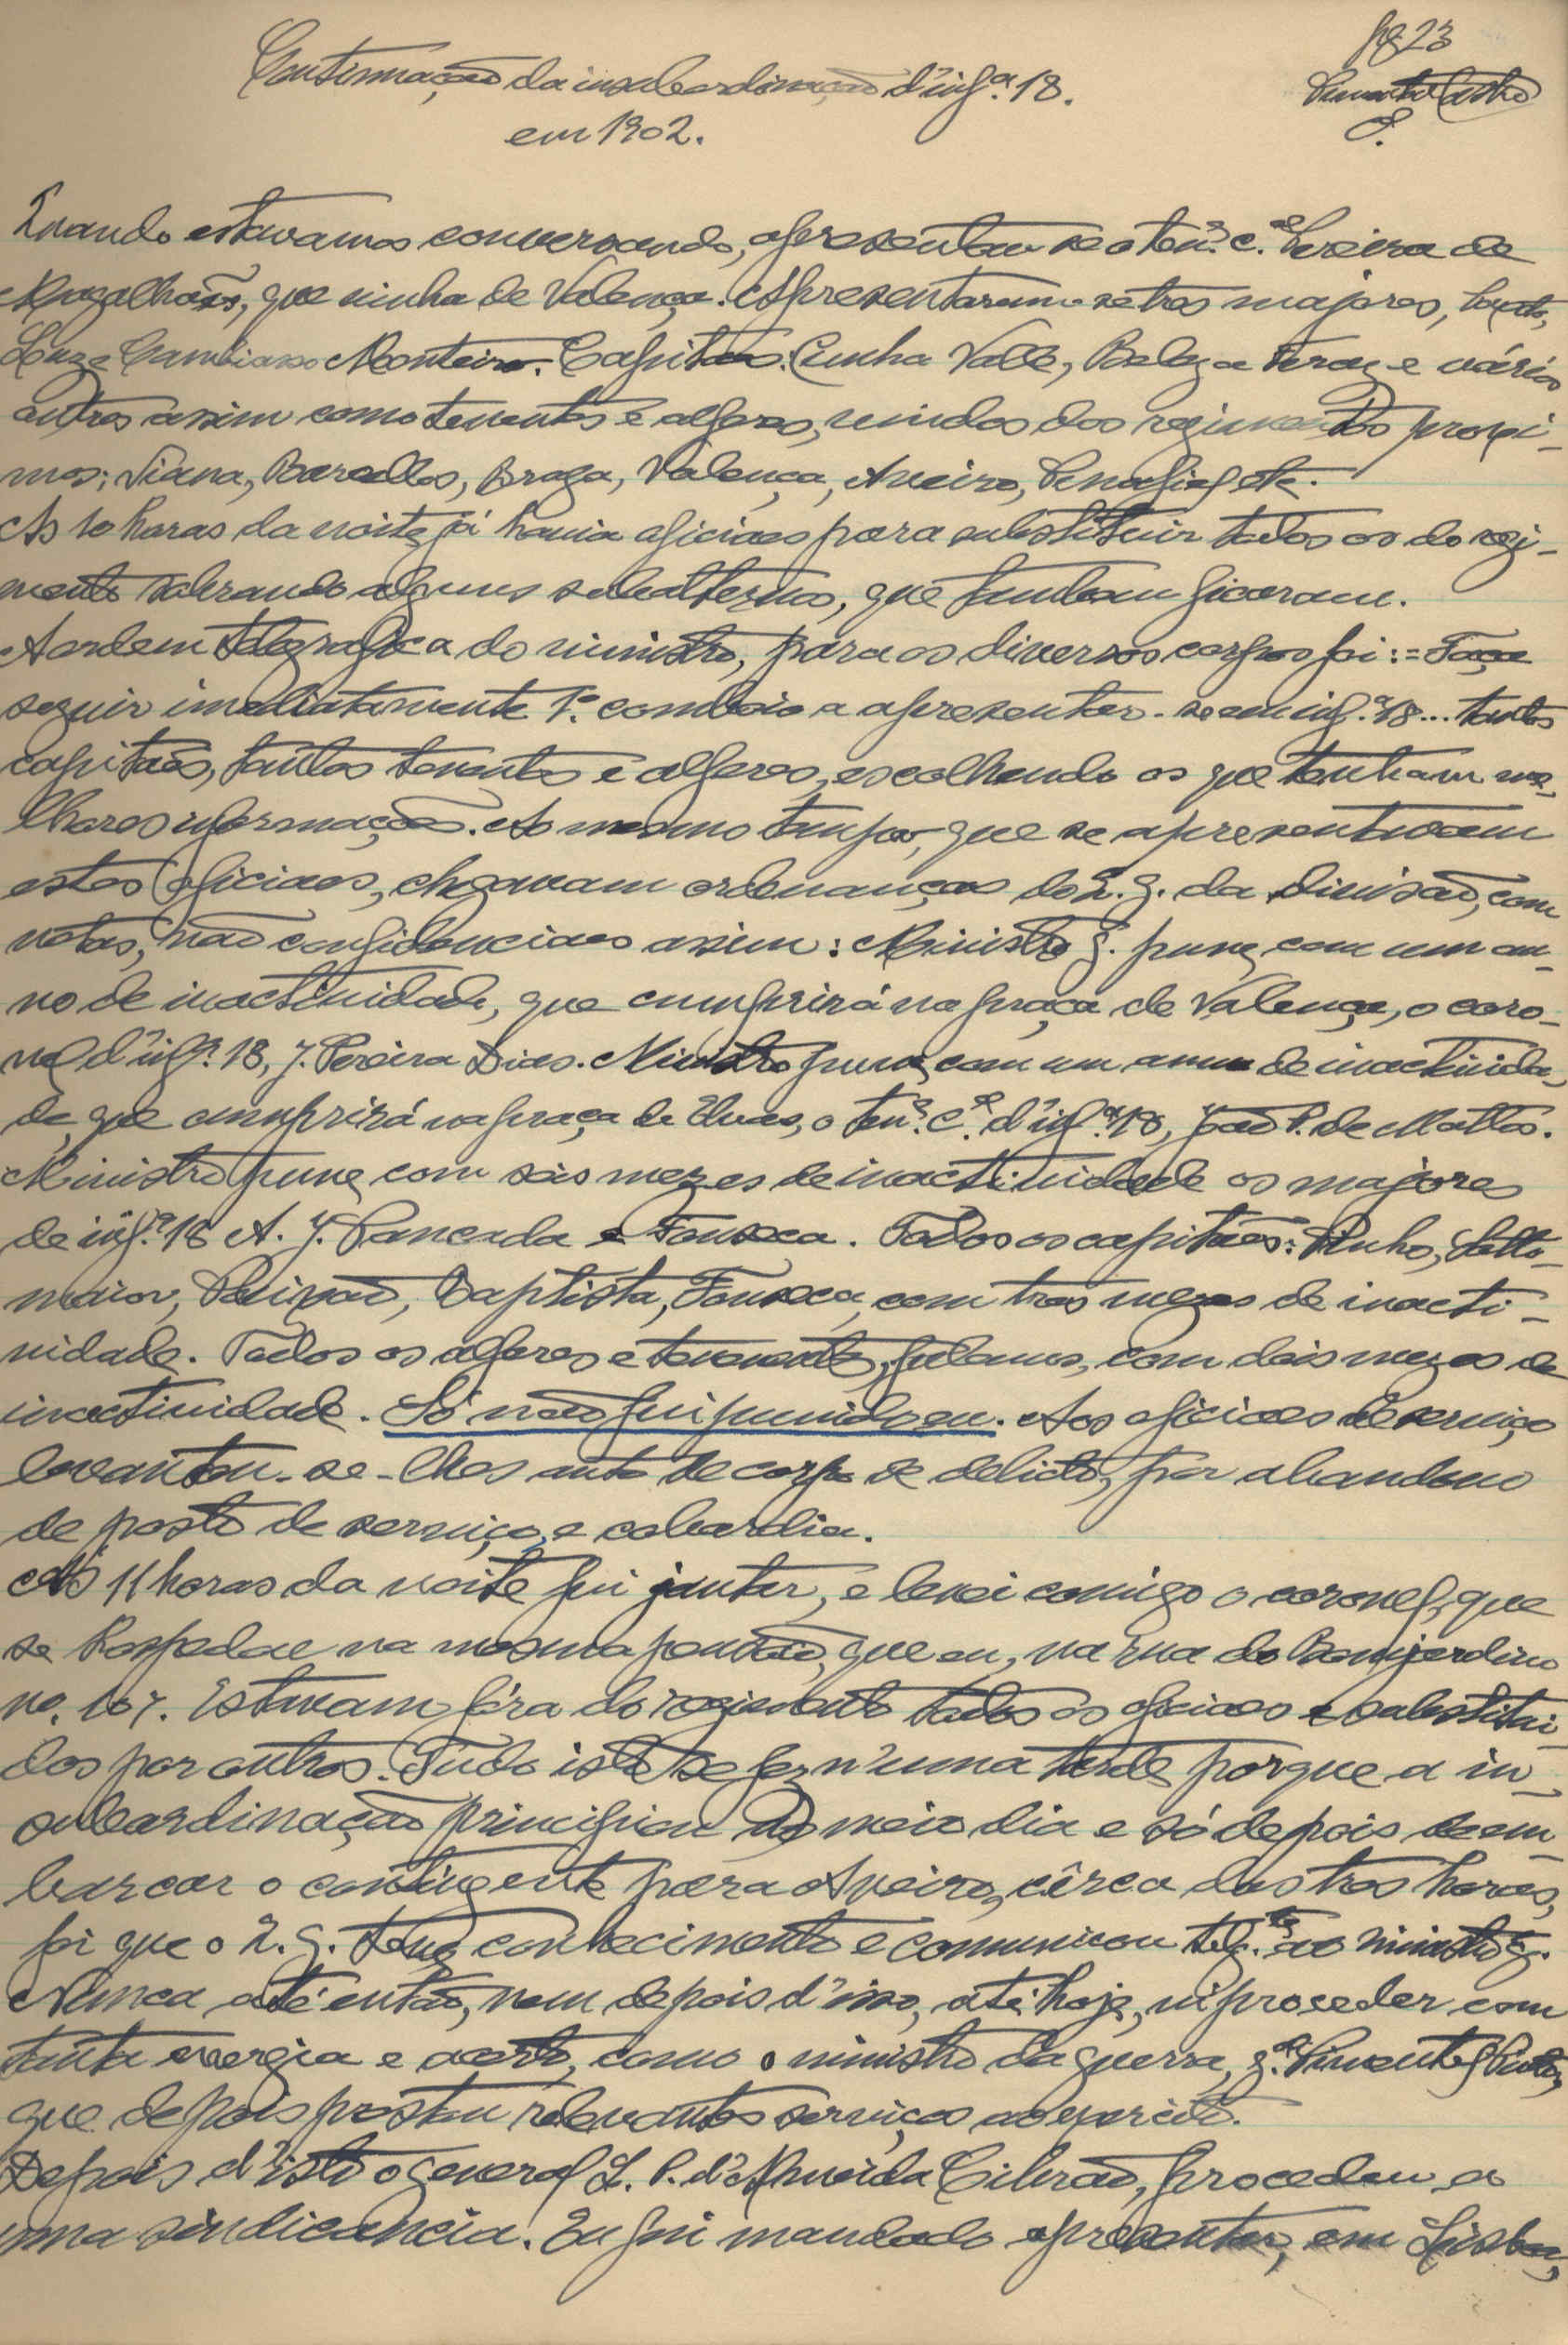 fg. 23
Continuação da insubordinação d'infª. 18.
em 1902.
Quando estavamos conversando, apresentou se o tenᵉ. c.ᵉˡ Pereira de
Magalhães, que vinha de Valença. Apresentaram-se tres majores,
Monteiro. Capitães: Cunha Valle, Beleza Ferraz e vários
outros assim como tenentes e alferes, vindos dos regimentos proxi-
mos; Viana, Barcellos, Braga, Valença, Aveiro, Penafiel etc.
As 10 horas da noite já havia oficiaes para substituir todos os do regi-
mento sobrando alguns subalternos, que tambem ficaram.
A ordem telegrafica do ministro, para os diversos corpos foi: = Faça
seguir imediatamente 1º. comboio a apresentar-se em inf.ª 18... tantos
capitães, tantos tenentes e alferes, escolhendo os que tenham me-
lhores informações. Ao mesmo tempo, que se apresentavam
estes oficiaes, chegavam ordenanças do Q. g. da divisão, com
notas, não confidenciaes assim: Ministro g. pune, com um an-
no de inactividade, que cumprirá na praça de Valença, o coro-
nel d'inf.ª 18, J. Pereira Dias. Ministro pune, com um anno de inactivida-
de, que cumprirá na praça de Elvas, o tenᵉ. c.ᵉˡ d'inf.ª 18, João P. de Mattos.
Ministro pune com seis mezes de inactividade os majores
de inf.ª 18 A. J. Pancada e Fonseca. Todos os capitães: Pinho, Sotto-
maior, Paixão, Baptista, Fonseca, com tres mezes de inacti-
vidade. Todos os alferes e tenentes, fulanos, com dois mezes de
inactividade. Só não fui punido eu. Aos oficiaes de serviço
levantou-se-lhes auto de corpo de delicto, por abandono
de posto de serviço, e cobardia.
Às 11 horas da noite fui jantar, e levei comigo o coronel, que
se hospedou na mesma pensão, que eu, na rua do Bomjardim
nº. 107. Estavam fóra do regimento todos os oficiaes e substitui-
dos por outros. Tudo isto se fez n'uma tarde, porque a in-
subordinação principiou ao meio dia e só depois de em-
barcar o contingente para Aveiro, cêrca das tres horas,
foi que o Q. g. teve conhecimento e comunicou telg.ᵗᵉ ao ministro g.
Nunca até então, nem depois d'isso, até hoje, vi proceder com
tanta energia e acerto, como o ministro da guerra, g.ᵃˡ Pimentel Pinto,
que depois prestou relevantes serviços ao exercito.
Depois d'isto o general L. P. d'Almeida Cibrão, procedeu a
uma sindicancia. Eu fui mandado apresentar, em Lisboa,